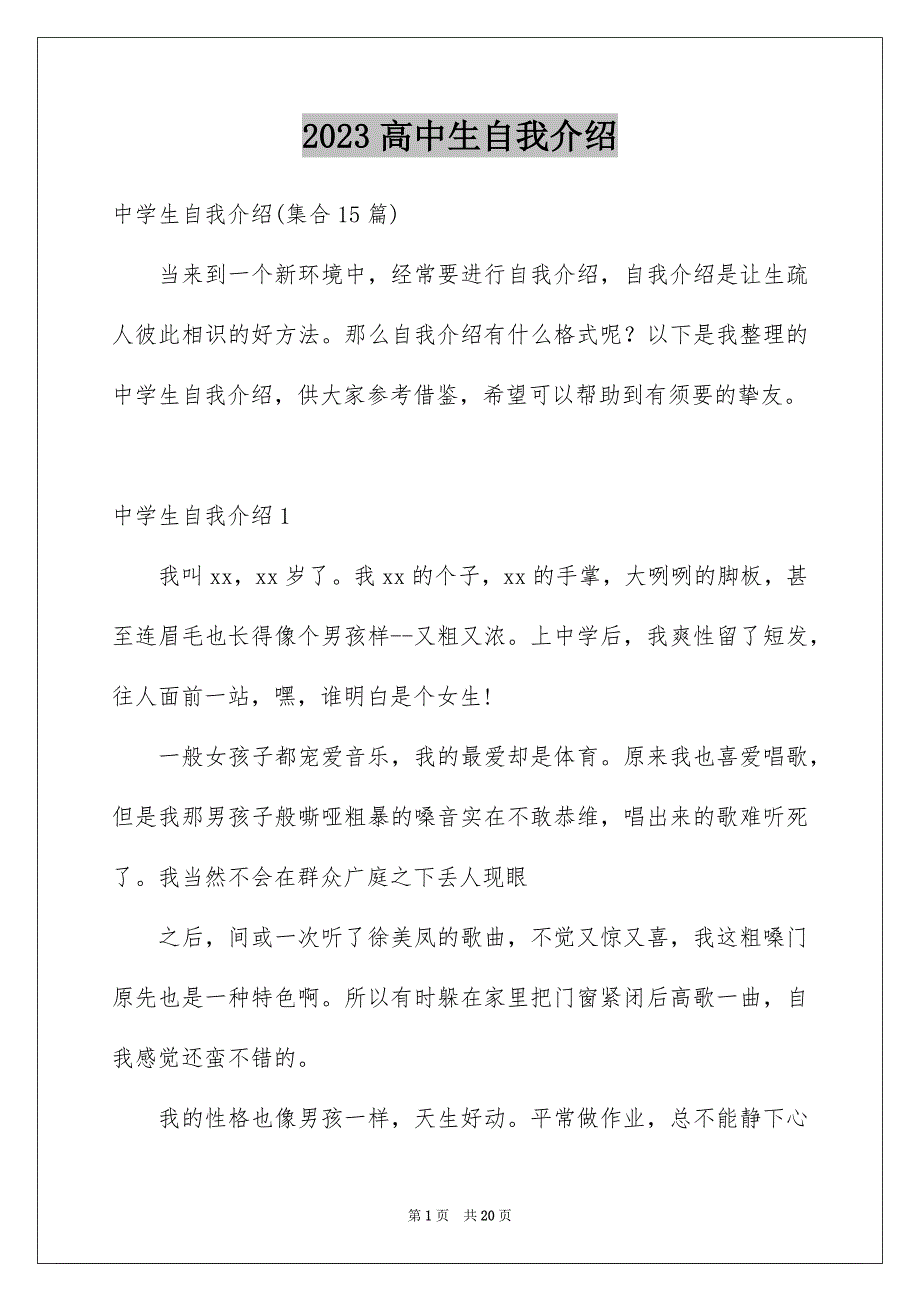 2023高中生自我介绍
中学生自我介绍(集合15篇)
当来到一个新环境中，经常要进行自我介绍，自我介绍是让生疏
人彼此相识的好方法。那么自我介绍有什么格式呢？以下是我整理的
中学生自我介绍，供大家参考借鉴，希望可以帮助到有须要的挚友。
中学生自我介绍1
我叫xx，xx岁了。我xx的个子，xx的手掌，大咧咧的脚板，甚
至连眉毛也长得像个男孩样--又粗又浓。上中学后，我爽性留了短发，
往人面前一站，嘿，谁明白是个女生!
一般女孩子都宠爱音乐，我的最爱却是体育。原来我也喜爱唱歌，
但是我那男孩子般嘶哑粗暴的嗓音实在不敢恭维，唱出来的歌难听死
了。我当然不会在群众广庭之下丢人现眼
之后，间或一次听了徐美凤的歌曲，不觉又惊又喜，我这粗嗓门
原先也是一种特色啊。所以有时躲在家里把门窗紧闭后高歌一曲，自
我感觉还蛮不错的。
我的性格也像男孩一样，天生好动。平常做作业，总不能静下心
第1页 共20页